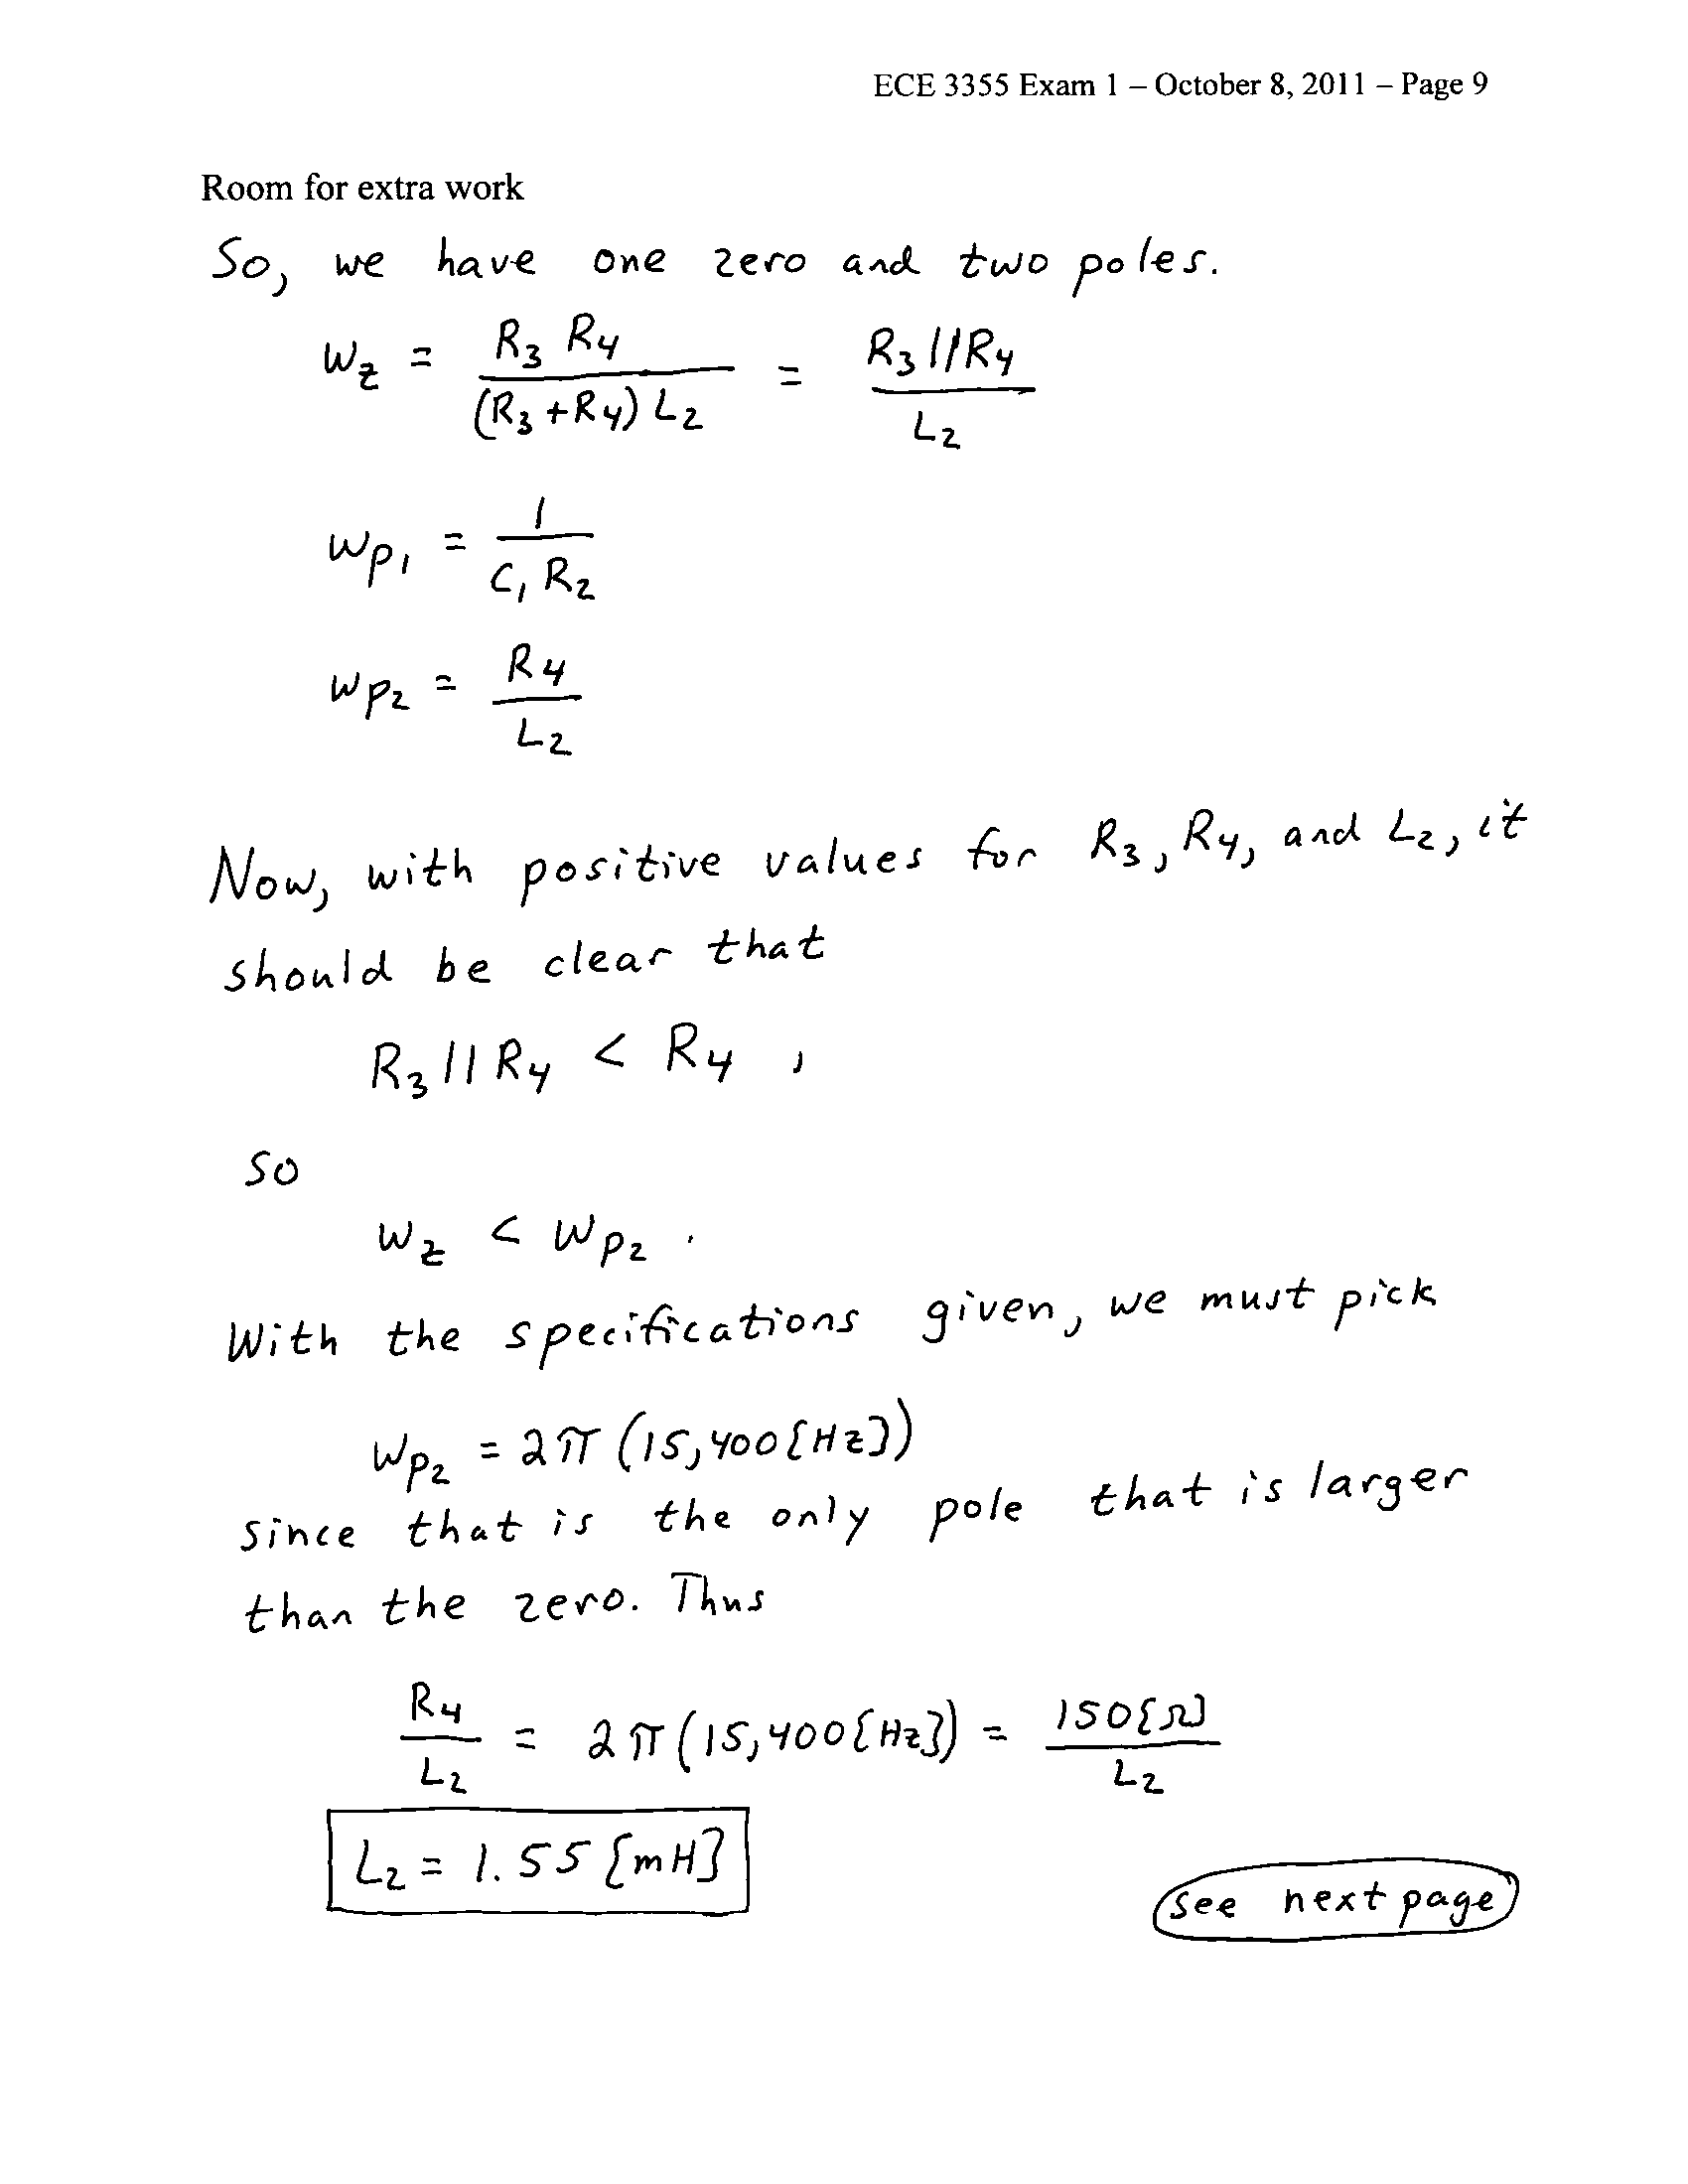 ECE 3355 Exam 1 – October 8, 2011 – Page 9
Room for extra work
So, we have one zero and two poles.
ω_z = R3 R4 / (R3+R4) L2 = R3//R4 / L2
ω_p1 = 1 / C1 R2
ω_p2 = R4 / L2
Now, with positive values for R3, R4, and L2, it
should be clear that
R3 // R4 < R4 ,
so
ω_z < ω_p2 .
With the specifications given, we must pick
ω_p2 = 2π (15,400[Hz])
since that is the only pole that is larger
than the zero. Thus
R4 / L2 = 2π (15,400[Hz]) = 150[Ω] / L2
L2 = 1.55 [mH]
see next page